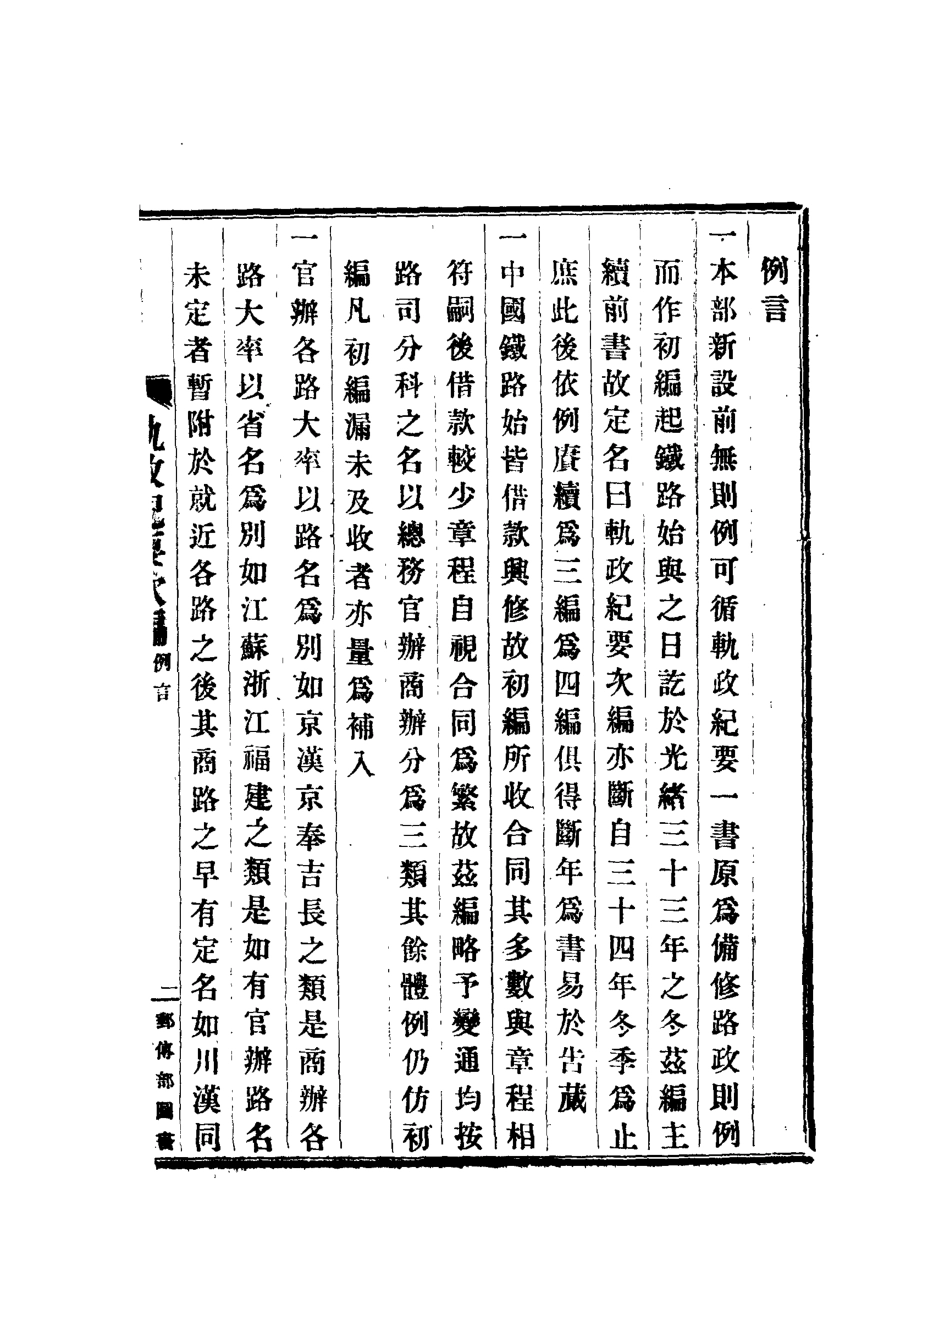 例言
一本部新設前無則例可循軌政紀要一書原爲備修路政則例
而作初編起鐵路始興之日訖於光緒三十三年之冬茲編主
續前書故定名曰軌政紀要次編亦斷自三十四年冬季爲止
庶此後依例賡續爲三編爲四編俱得斷年爲書易於吿蕆
一中國鐵路始皆借款興修故初編所收合同其多數與章程相
符嗣後借款較少章程自視合同爲繁故茲編略予變通均按
路司分科之名以總務官辦商辦分爲三類其餘體例仍仿初
編凡初編漏未及收者亦量爲補入
一官辦各路大率以路名爲別如京漢京奉吉長之類是商辦各
路大率以省名爲別如江蘇浙江福建之類是如有官辦路名
未定者暫附於就近各路之後其商路之早有定名如川漢同
軌政紀要次編 例言 二 郵傳部圖書